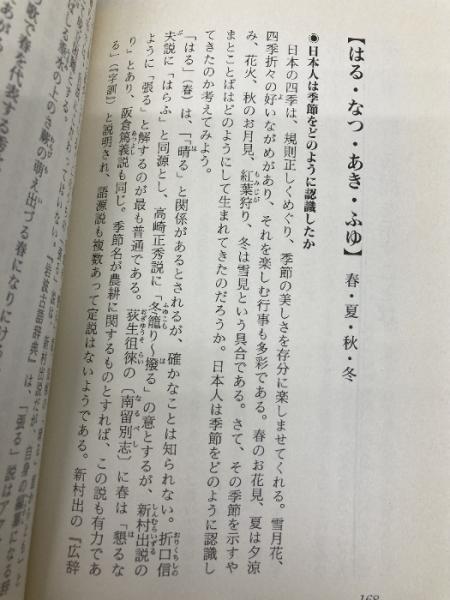 【はる・なつ・あき・ふゆ】 春・夏・秋・冬
◉日本人は季節をどのように認識したか
日本の四季は、規則正しくめぐり、季節の美しさを存分に楽しませてくれる。雪月花、
四季折々の好いながめがあり、それを楽しむ行事も多彩である。春のお花見、夏は夕涼
み、花火、秋のお月見、紅葉狩り、冬は雪見という具合である。さて、その季節を示すや
まとことばはどのようにして生まれてきたのだろうか。日本人は季節をどのように認識し
てきたのか考えてみよう。
「はる」(春)は、「晴る」と関係があるとされるが、確かなことは知られない。折口信
夫説に「はらふ」と同源とし、高崎正秀説に「冬籠り〜撥る」の意とするが、新村出説の
ように「張る」と解するのが最も普通である。荻生徂徠の〔南留別志〕に春は「懇るな
」とあり、阪倉篤義説も同じ。季節名が農耕に関するものとすれば、この説も有力であ
る」(『字訓』)と説明され、語源説も複数あって定説はないようである。新村出の『広辞
『岩波古語辞典』は、「張る」説はア
の萌え出づる春になりにける
歌で春を代表する
168